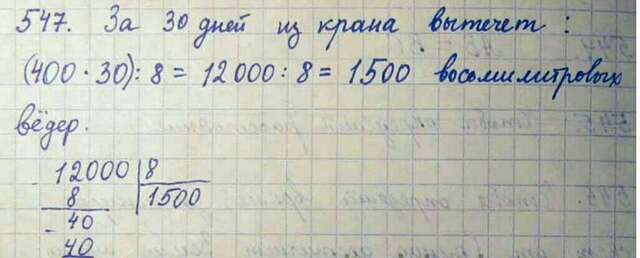 547. За 30 дней из крана вытечет :
(400 · 30) : 8 = 12 000 : 8 = 1500 восьмилитровых
вёдер.
12000 | 8
8 | 1500
- 40
40